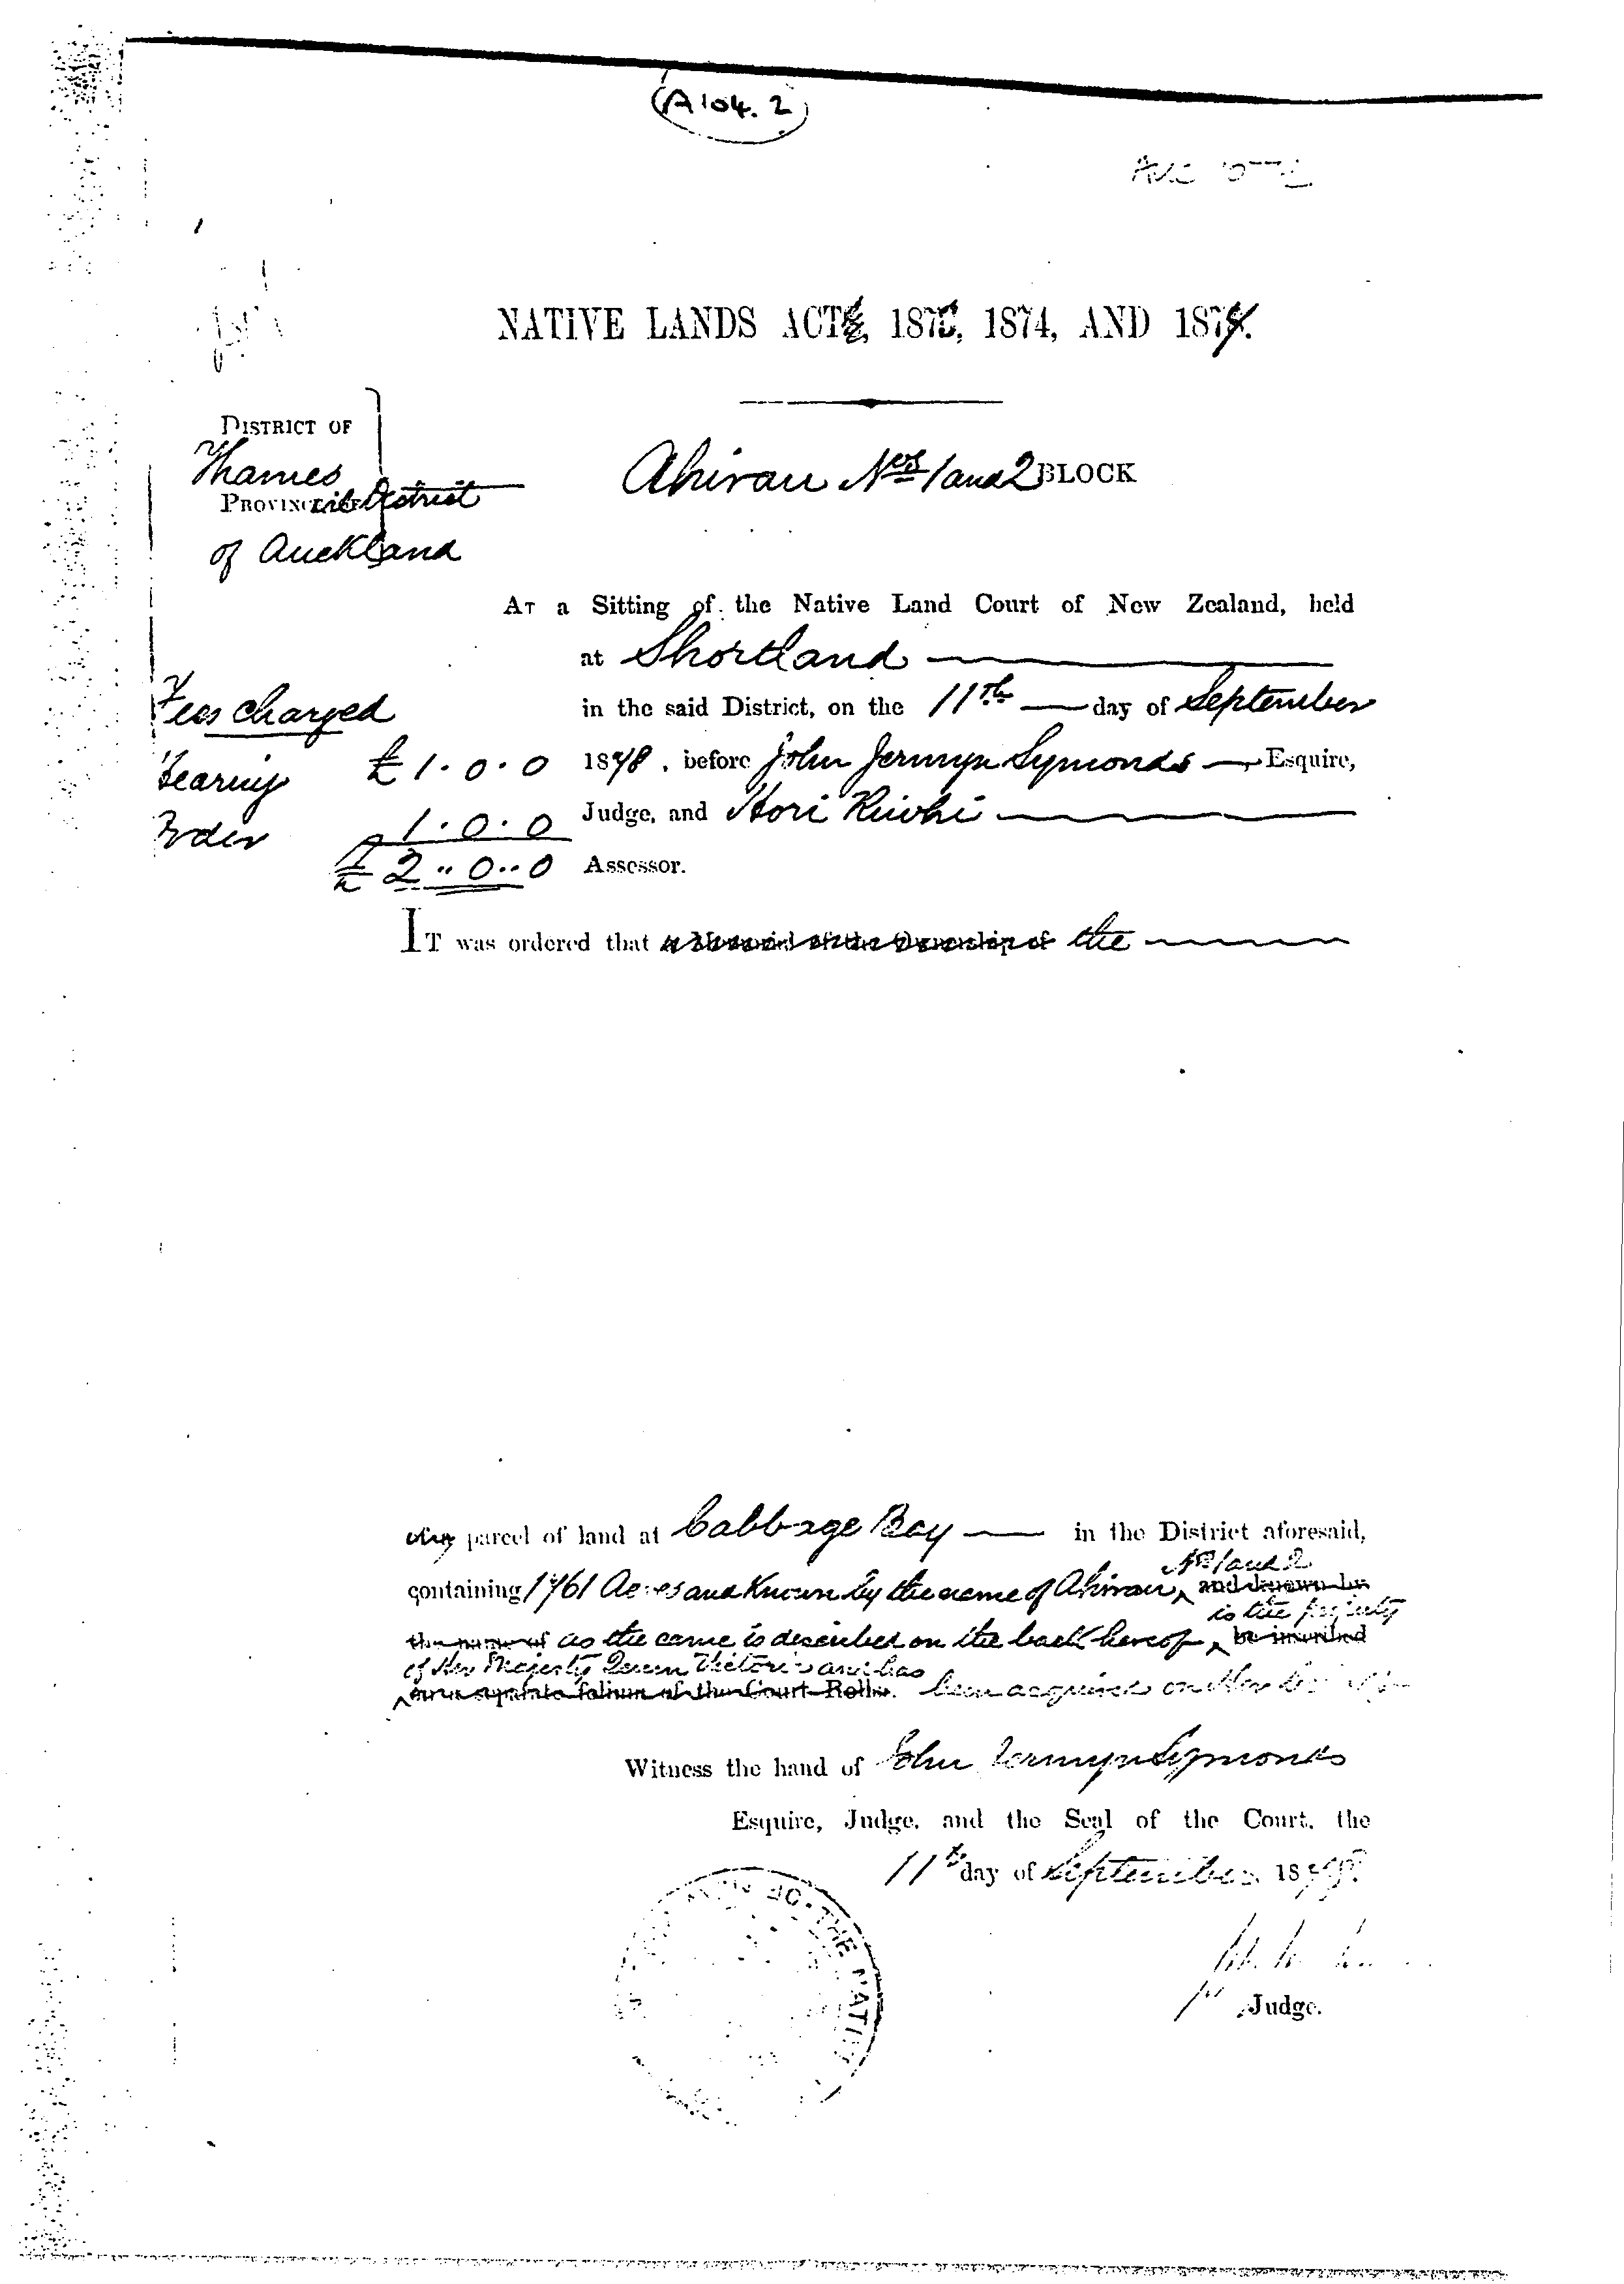 (A 104. 2)
NATIVE LANDS ACT, 187, 1874, AND 187
DISTRICT OF
Thames
PROVINCIAL District
of Auckland
Ahirau Nos 1 and 2 BLOCK
AT a Sitting of the Native Land Court of New Zealand, held
at Shortland
in the said District, on the 11th day of September
1878, before John Jermyn Symonds Esquire,
Judge, and Hori Riwhi
Assessor.
Fees charged
Hearing £1.0.0
Order 1.0.0
£2"0"0
IT was ordered that a Memorial of the Ownership of the
parcel of land at Cabbage Bay in the District aforesaid,
Nos 1 and 2
containing 1761 Acres and known by the name of Ahirau, and known by
is the property
the name of as the same is described on the back hereof, be inscribed
of Her Majesty Queen Victoria and has
on a separate folium of the Court Rolls. been acquired on Her
Witness the hand of John Jermyn Symonds
Esquire, Judge, and the Seal of the Court, the
11th day of September 187
Judge.